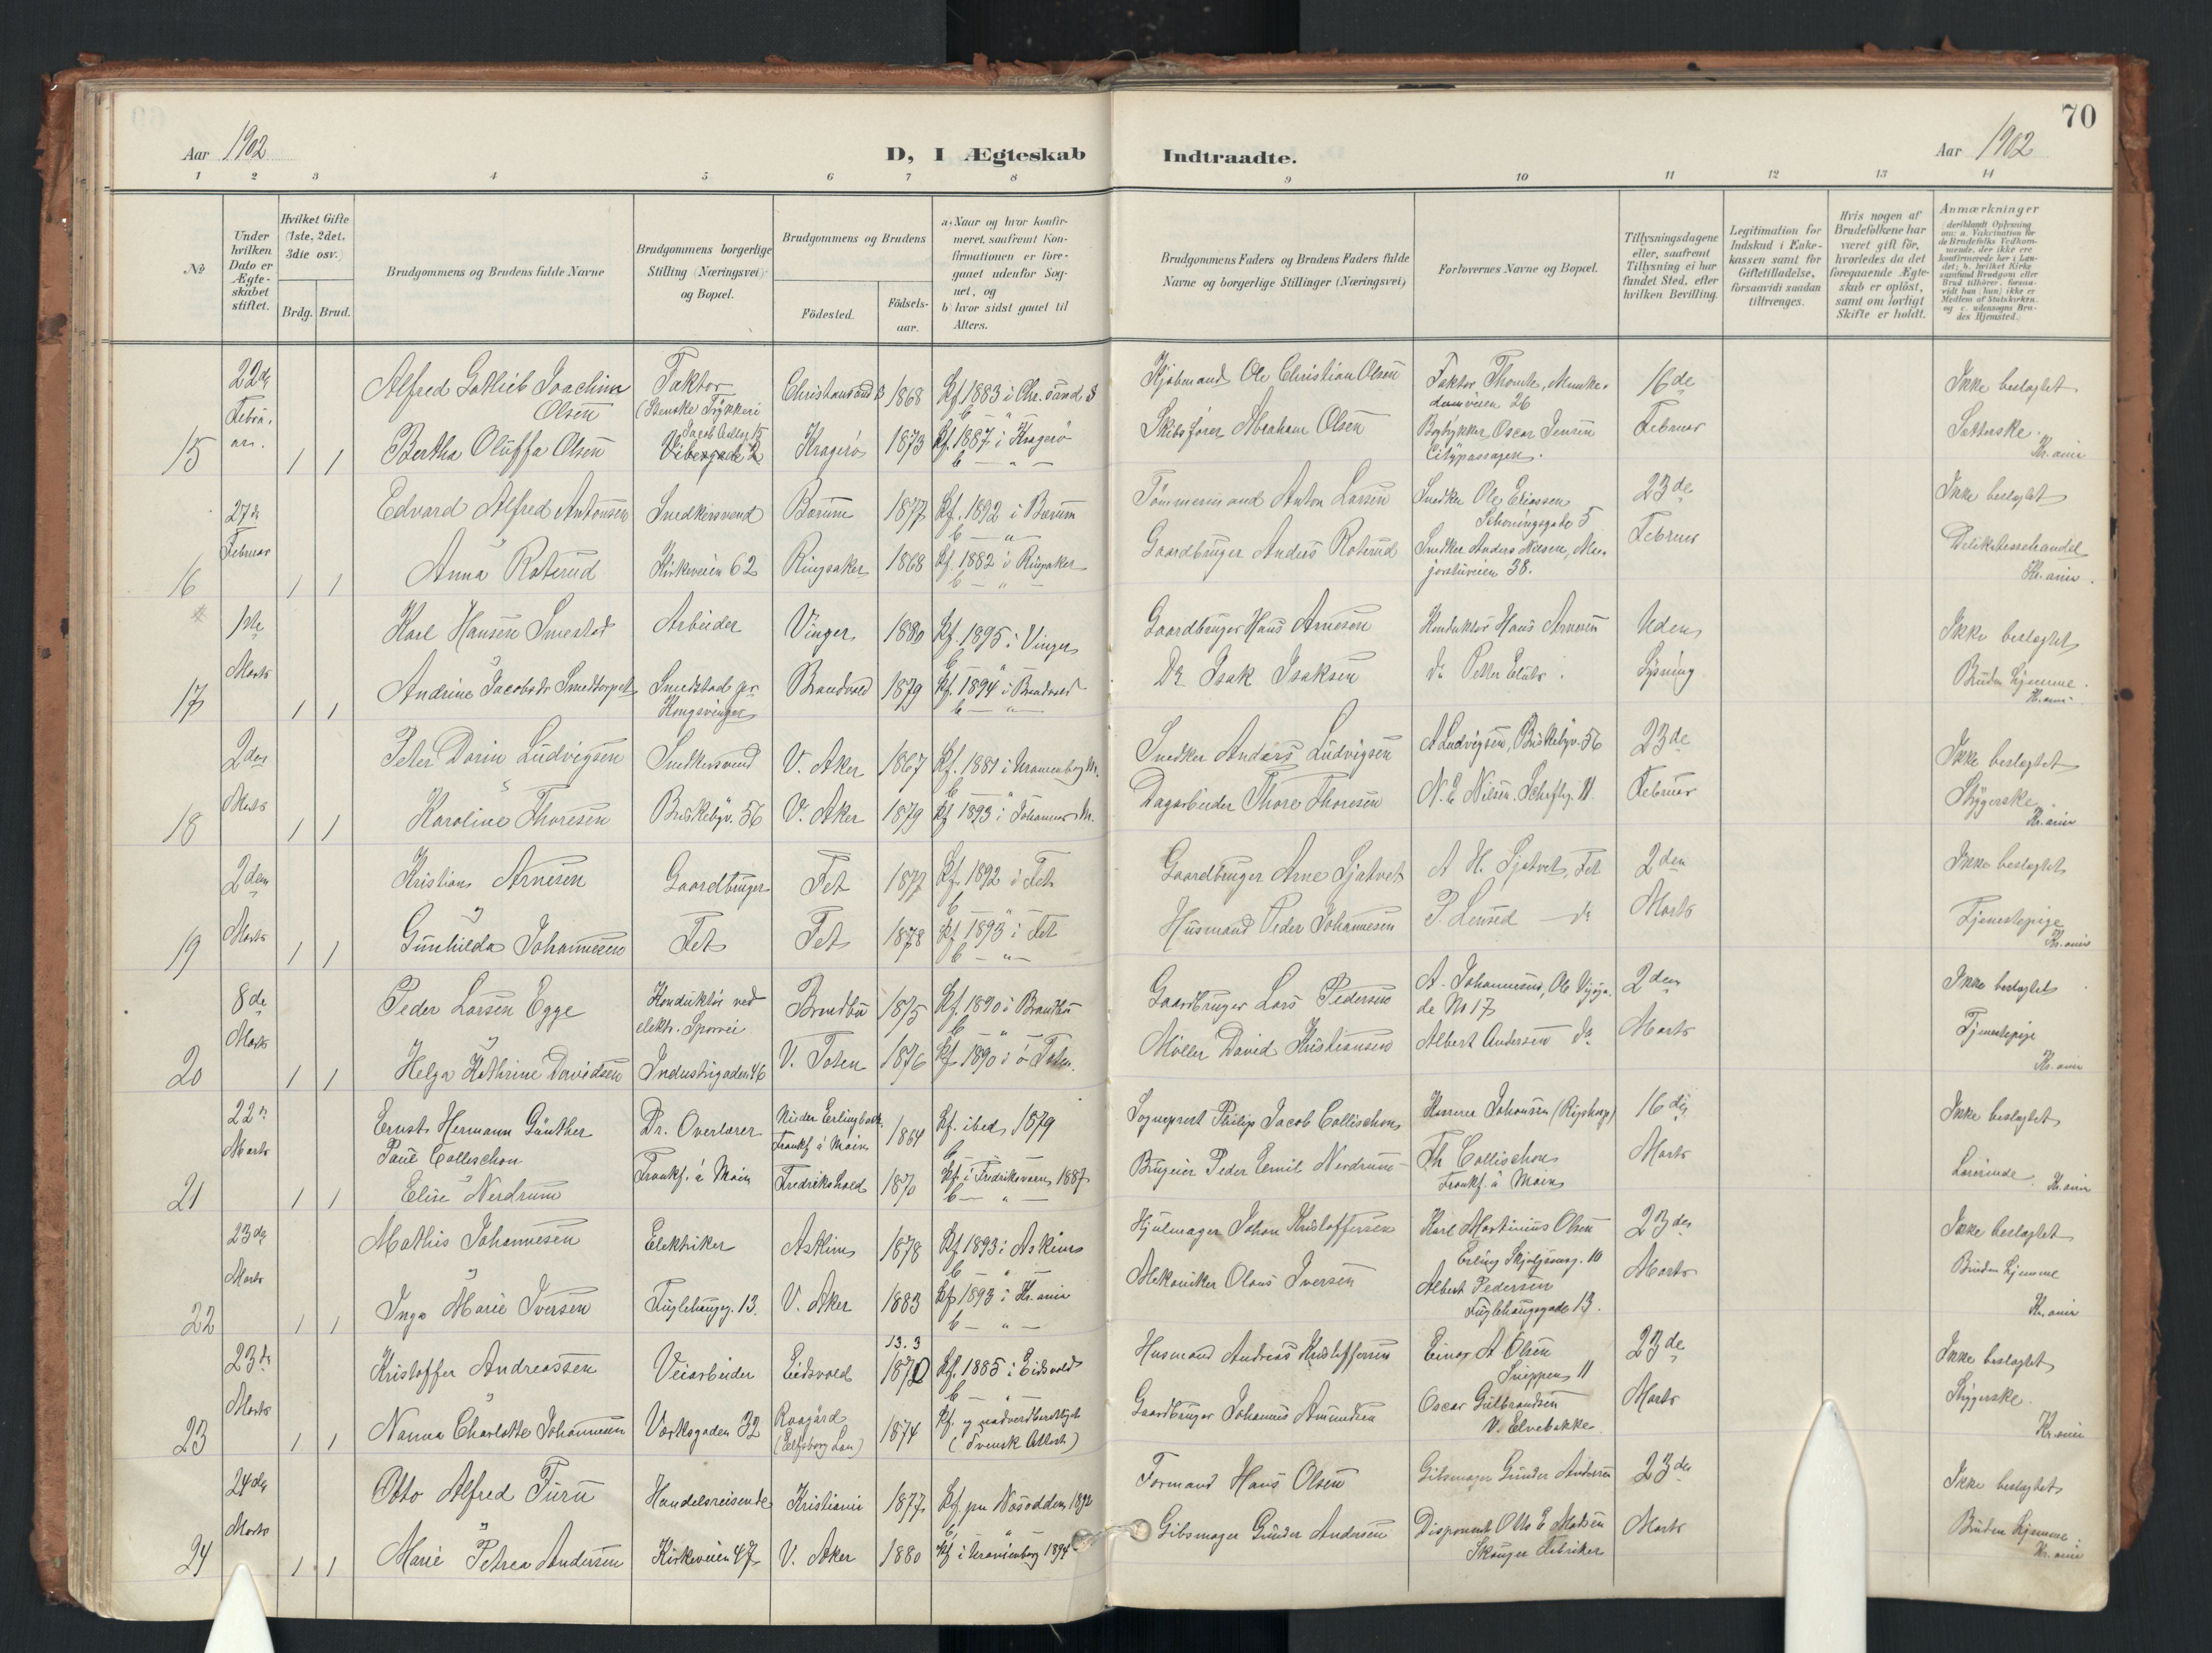 70
Aar 1902
D, I Ægteskab Indtraadte.
Aar 1902
1 2 3 4 5 6 7 8 9 10 11 12 13 14
No
Under hvilken Dato er Ægte-skabet stiftet.
Hvilket Gifte (1ste, 2det, 3die osv.)
Brdg. Brud.
Brudgommens og Brudens fulde Navne
Brudgommens borgerlige Stilling (Næringsvei) og Bopæl.
Brudgommens og Brudens
Födested.
Födsels-aar.
a) Naar og hvor konfir-meret, saafremt Kon-firmationen er fore-gaaet udenfor Sog-net, og
b) hvor sidst gaaet til Alters.
Brudgommens Faders og Brudens Faders fulde Navne og borgerlige Stillinger (Næringsvei)
Forlovernes Navne og Bopæl.
Tillysningsdagene eller, saafremt Tillysning ei har fundet Sted, efter hvilken Bevilling.
Legitimation for Indskud i Enke-kassen samt for Giftetilladelse, forsaavidt saadan tiltrænges.
Hvis nogen af Brudefolkene har været gift för, hvorledes da det foregaaende Ægte-skab er oplöst, samt om lovligt Skifte er holdt.
Anmærkninger
deriblandt Oplysning om: a. Vakcination for de Brudefolks Vedkom-mende, der ikke ere konfirmerede her i Lan-det; b. hvilket Kirke-samfund Brudgom eller Brud tilhörer, forsaa-vidt han (hun) ikke er Medlem af Statskirken, og c. udensogns Bru-des Hjemsted.
15 22de Februar 1 1
Alfred Gotlieb Joachim Olsen Faktor (Stenske Trykkeri Christiansand S 1868 Kf. 1883 i Chr.sand S Kjøbmand Ole Christian Olsen Faktor Thomle, Munke-damsveien 26 16de Ikke beslægtet
Bertha Oluffa Olsen Vibesgade 2 Kragerø 1873 Kf. 1887 i Kragerø Skibsfører Abraham Olsen Bogtrykker Oscar Jensen Citypassagen. Februar Sætterske. Kr.ania
16 27de Februar 1 1
Edvard Alfred Antonsen Snedkersvend Bærum 1877 Kf. 1892 i Bærum Tømmermand Anton Larsen Snedker Ole Eliassen Schøningsgade 5 23de Ikke beslægtet
Anna Roterud Kirkeveien 62 Ringsaker 1868 Kf. 1882 i Ringsaker Gaardbruger Anders Roterud Snedker Anders Nilsen, Ma-jorstuveien 38. Februar Delikatessehandel Kr.ania.
17 1ste Marts 1 1
Karl Hansen Smestad Arbeider Vinger 1880 Kf. 1895 i Vinger Gaardbruger Hans Arnesen Konduktør Hans Arnesen Uden Ikke beslægtet
Andrine Jacobsdr Smedtorpet Smedstad pr Kongsvinger Brandvold 1879 Kf. 1894 i Brandvold Do Isak Isaksen do Petter Lysning Bruden hjemme. Kr.ania
18 2den Marts 1 1
Peter Dorin Ludvigsen Snedkersvend V. Aker 1867 Kf. 1881 i Uranienborg M. Snedker Anders Ludvigsen A. Ludvigsen, Briskebyv. 56 23de Ikke beslægtet
Karoline Thoresen Briskebyv. 56 V. Aker 1879 Kf 1893 i Johannes M. Dagarbeider Thore Thoresen N. E. Nilsen. 11 Februar Strygerske Kr.ania
19 2den Marts 1 1
Kristian Arnesen Gaardbruger Fet 1877 Kf. 1892 i Fet Gaardbruger Arne Sjatvet A. H. Sjatvet, Fet 2den Ikke beslægtet
Gunhilda Johannesen Fet Fet 1878 Kf. 1893 i Fet Husmand Peder Johannesen P. do Marts Tjenestepige Kr.ania
20 8de Marts 1 1
Peder Larsen Egge Konduktør ved elektr. Sporvei Brandbu 1875 Kf. 1890 i Brandbu Gaardbruger Lars Pedersen A. Johannesen, Ole Vigsga-de No 17 2den Ikke beslægtet
Helga Kathrine Davidsen Industrigaden 46 V. Toten 1876 Kf. 1890 i Ø. Toten. Møller David Kristiansen Albert Andersen do Marts Tjenestepige Kr.ania
21 22de Marts 1 1
Ernst Hermann Günther Paul Collischon Dr. Overlærer Frankf. a Main 1864 Kf. ibed 1879 Sogneprest Philip Jacob Collischon Johansen 16de Ikke beslægtet
Elise Nerdrum Frankf. a Main Fredrikshald 1870 Kf. i Fredriksværn 1887 Brugeier Peder Emil Nerdrum Th Collischon Frankf. a Main Marts Lærerinde. Kr.ania
22 23de Marts 1 1
Mathis Johannesen Elektriker Askim 1878 Kf. 1893 i Askim Hjulmager Johan Kristoffersen Karl Martinius Olsen Erling Skjalgsong. 10 23de Ikke beslægtet
Inga Marie Iversen Fuglehaugg. 13. V. Aker 1883 Kf 1893 i Kr.ania Mekaniker Olaus Iversen Albert Pedersen Fuglehaugsgade 13. Marts Bruden hjemme Kr.ania
23 23de Marts 1 1
Kristoffer Andreassen Veiarbeider Eidsvold 13.3 1870 Kf. 1885 i Eidsvold Husmand Andreas Kristoffersen Einar A Olsen Snippen 11 23de Ikke beslægtet
Nanna Charlotte Johannesen Værksgaden 32 (Elfsborg Len) 1874 Kf. og nadverdberettiget (Svensk Attest) Gaardbruger Johannes Oscar Gulbrandsen V. Elvebakke. Marts Strygerske. Kr.ania
24 24de Marts 1 1
Otto Alfred Furu Handelsreisende Kristiania 1877 Kf. paa Næsodden 1892 Formand Hans Olsen Gibsmager Gunder Andersen 23de Ikke beslægtet
Marie Petrea Andersen Kirkeveien 47 V. Aker 1880 Kf i Uranienborg 1894 Gibsmager Gunder Andersen Disponent Otto E Madsen Marts Bruden hjemme. Kr.ania